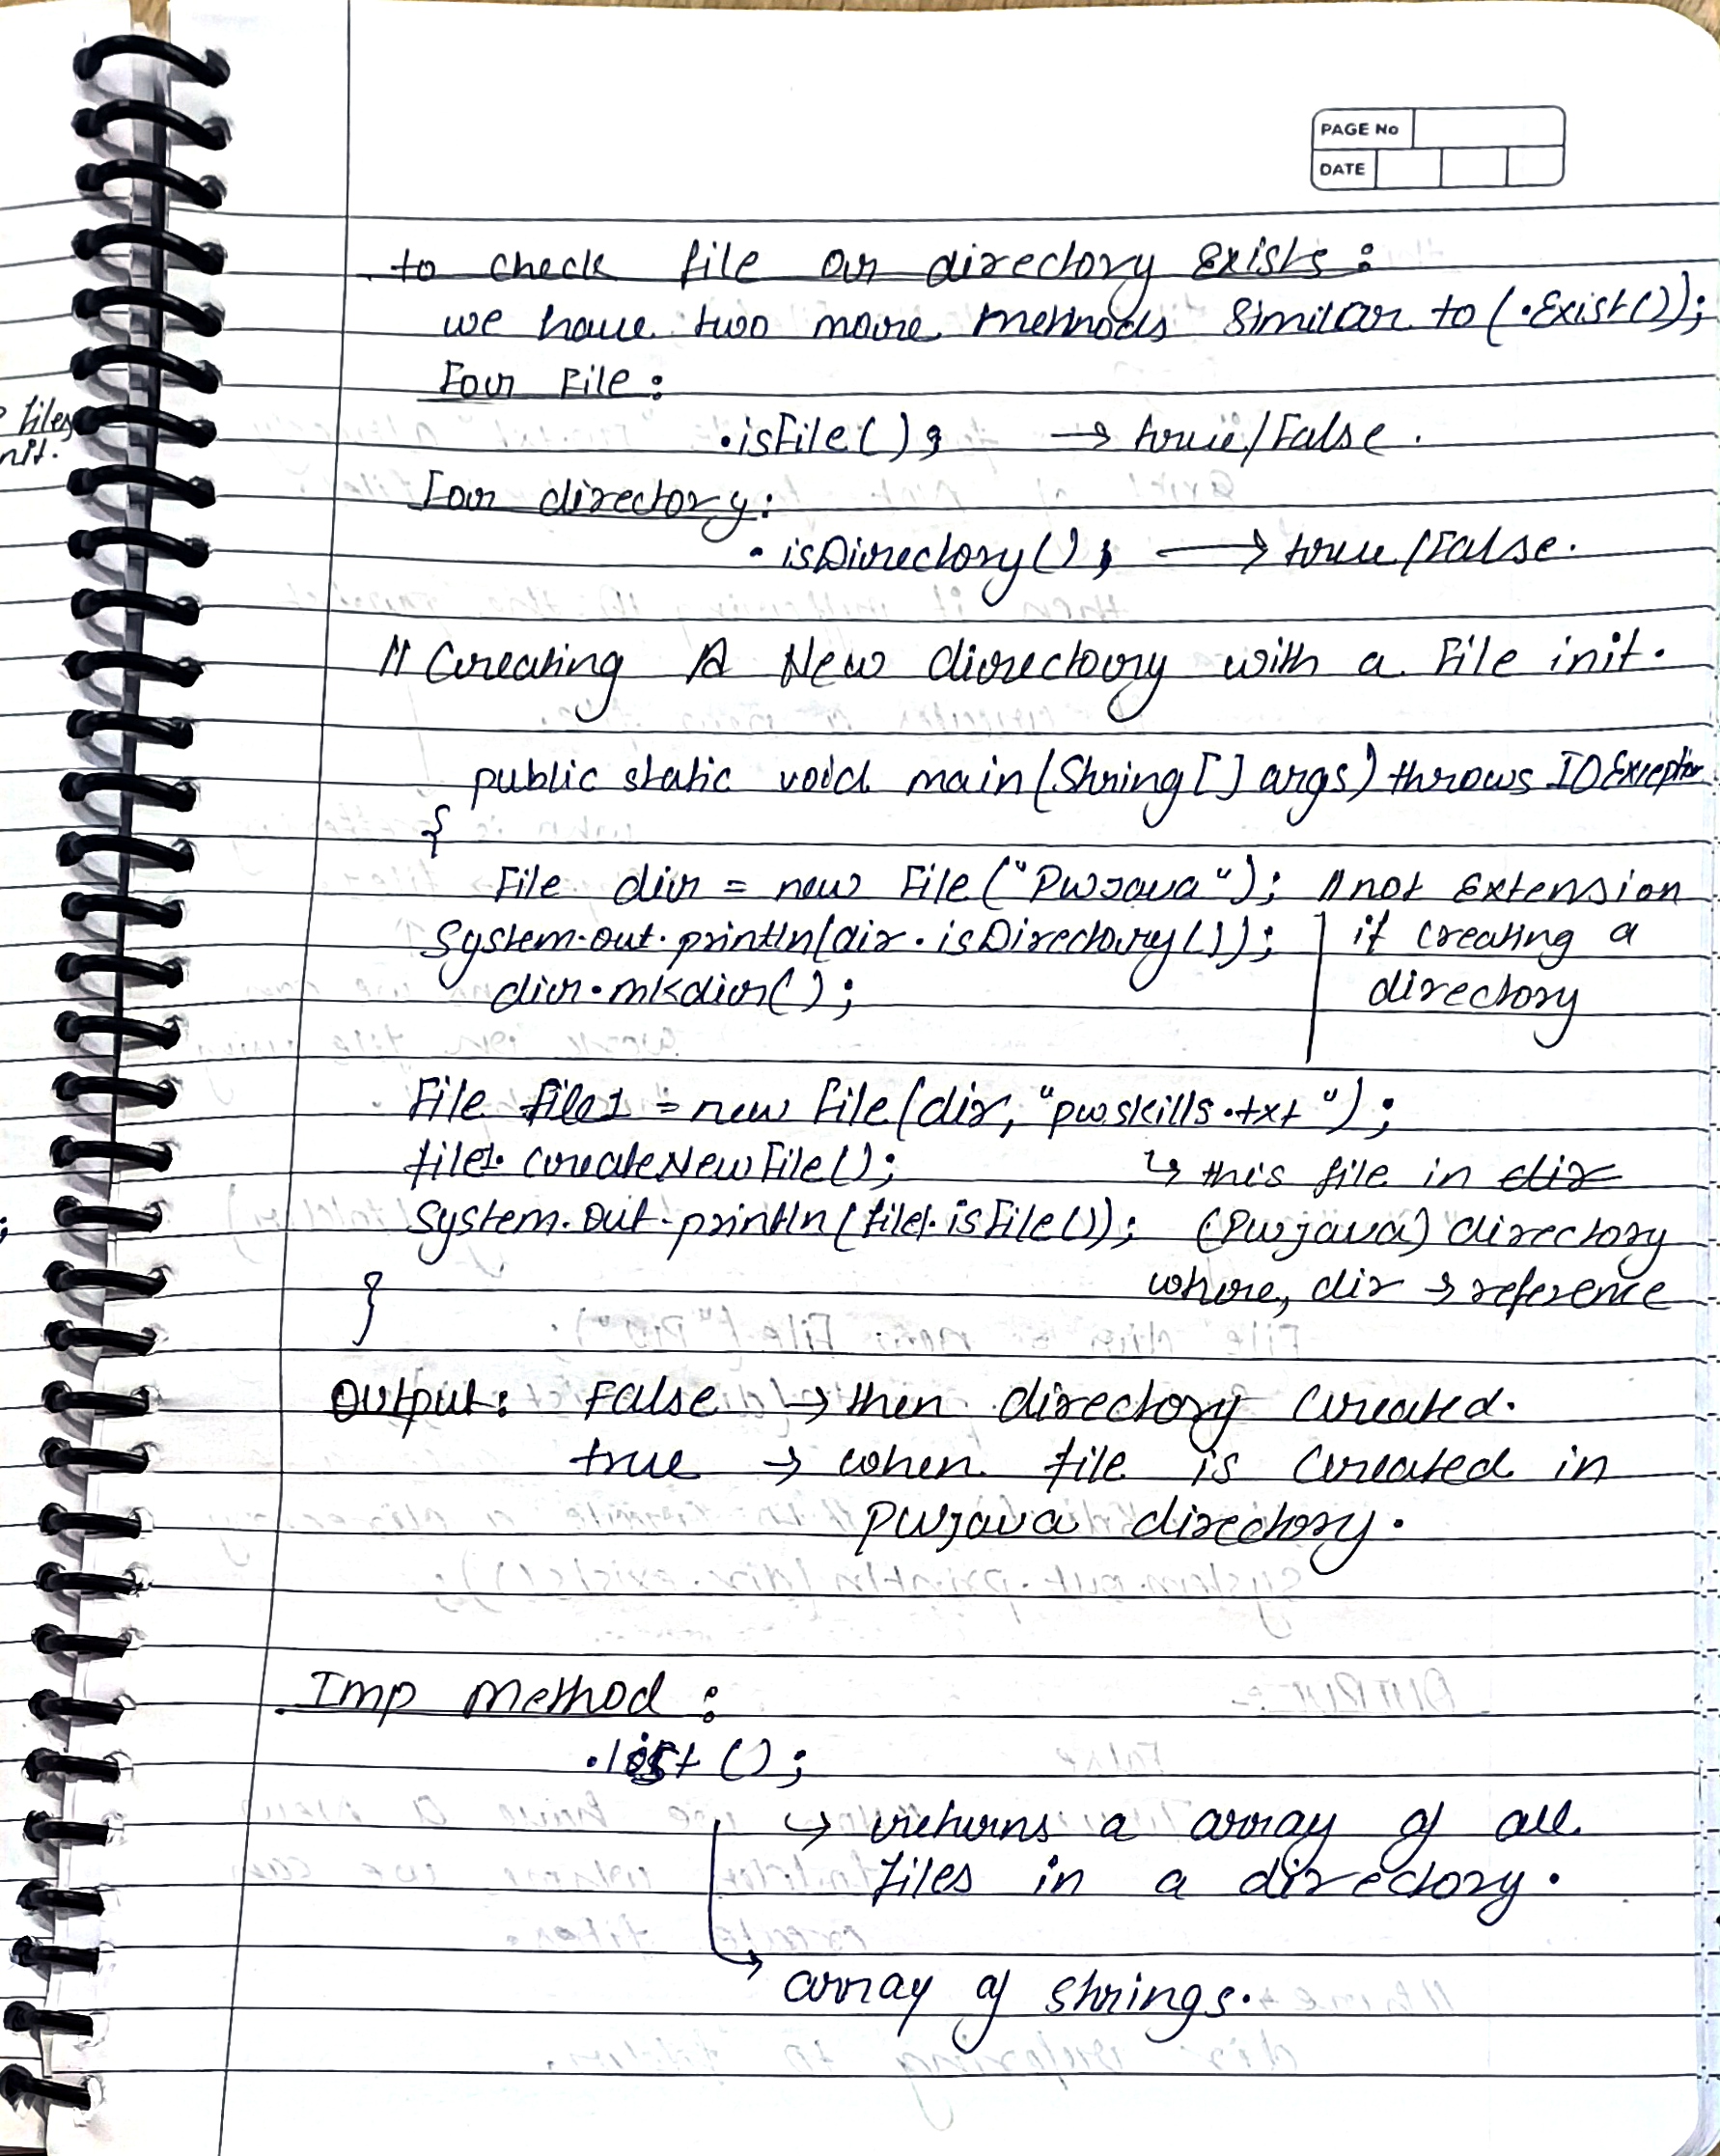 PAGE No
DATE
to check file or directory Exists :
we have two more methods Similar to (.Exist());
For File :
.isFile(); → true/False.
For directory :
.isDirectory(); → true/False.
// Creating A New directory with a File init.
public static void main(String[] args) throws IOException
{
File dir = new File("PwJava"); // not Extension
System.out.println(dir.isDirectory()); if creating a
dir.mkdir(); directory
File file1 = new File(dir, "pwskills.txt");
file1.createNewFile(); ↳ this file in dir
System.out.println(file1.isFile()); (Pwjava) directory
where, dir → reference
}
Output: False → then directory created.
true → when file is created in
PWJava directory.
Imp method :
.list();
↳ returns a array of all
files in a directory.
↳ array of strings.
files
nit.
;